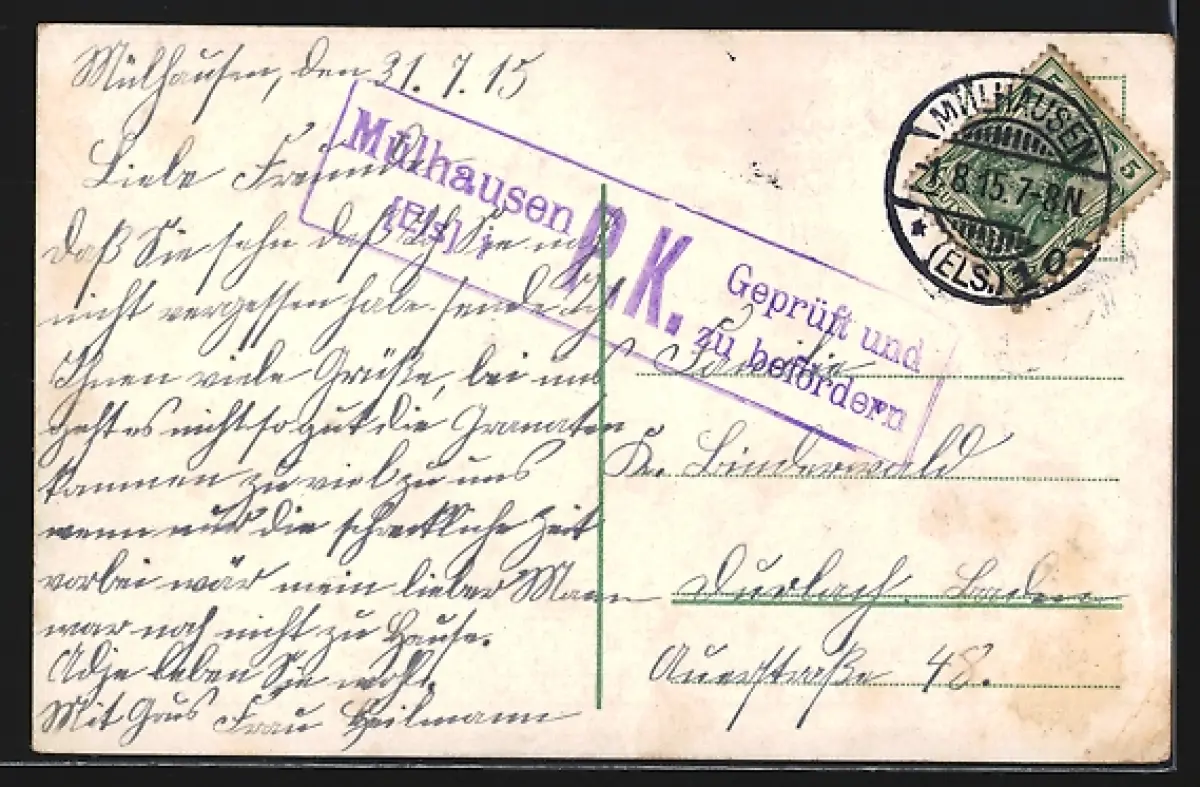 Mülhausen, den 31. 7. 15
Liebe Freunde
daß Sie sehn daß ich Sie noch
nicht vergessen habe sende ich
Ihnen viele Grüße, bei uns
geht es nicht so gut die Granaten
kammen zu viel zu uns
wenn nur die schreckliche Zeit
vorbei wär mein lieber Mann
war noch nicht zu Hause.
Adje leben Sie wohl.
Mit Grus Frau Heilmann
Mülhausen
(Els)
P. K.
Geprüft und
zu befördern
MÜLHAUSEN
1.8.15.7-8N.
* (ELS.) 1 o
5
5
Familie
Binderwald
Durlach. Baden
Auerstraße 48.